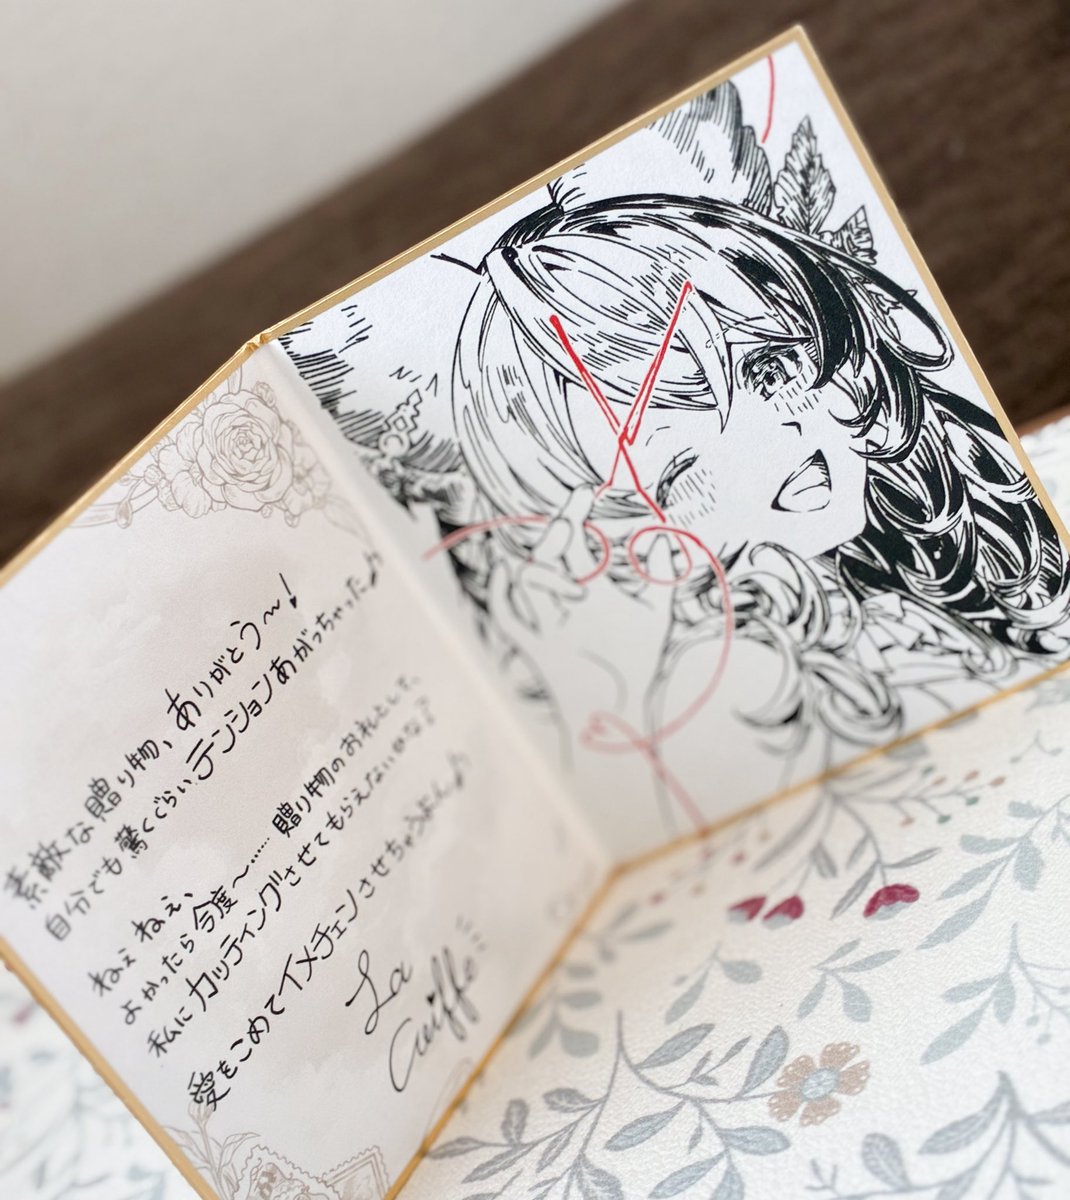 素敵な贈り物、ありがとう〜!
自分でも驚くぐらい、テンションあがっちゃった♪
ねぇ ねぇ、
よかったら今度〜…… 贈り物のお礼として、
私にカッティングさせてもらえないかな?
愛をこめてイメチェンさせちゃうよん♪
La
Coiffe